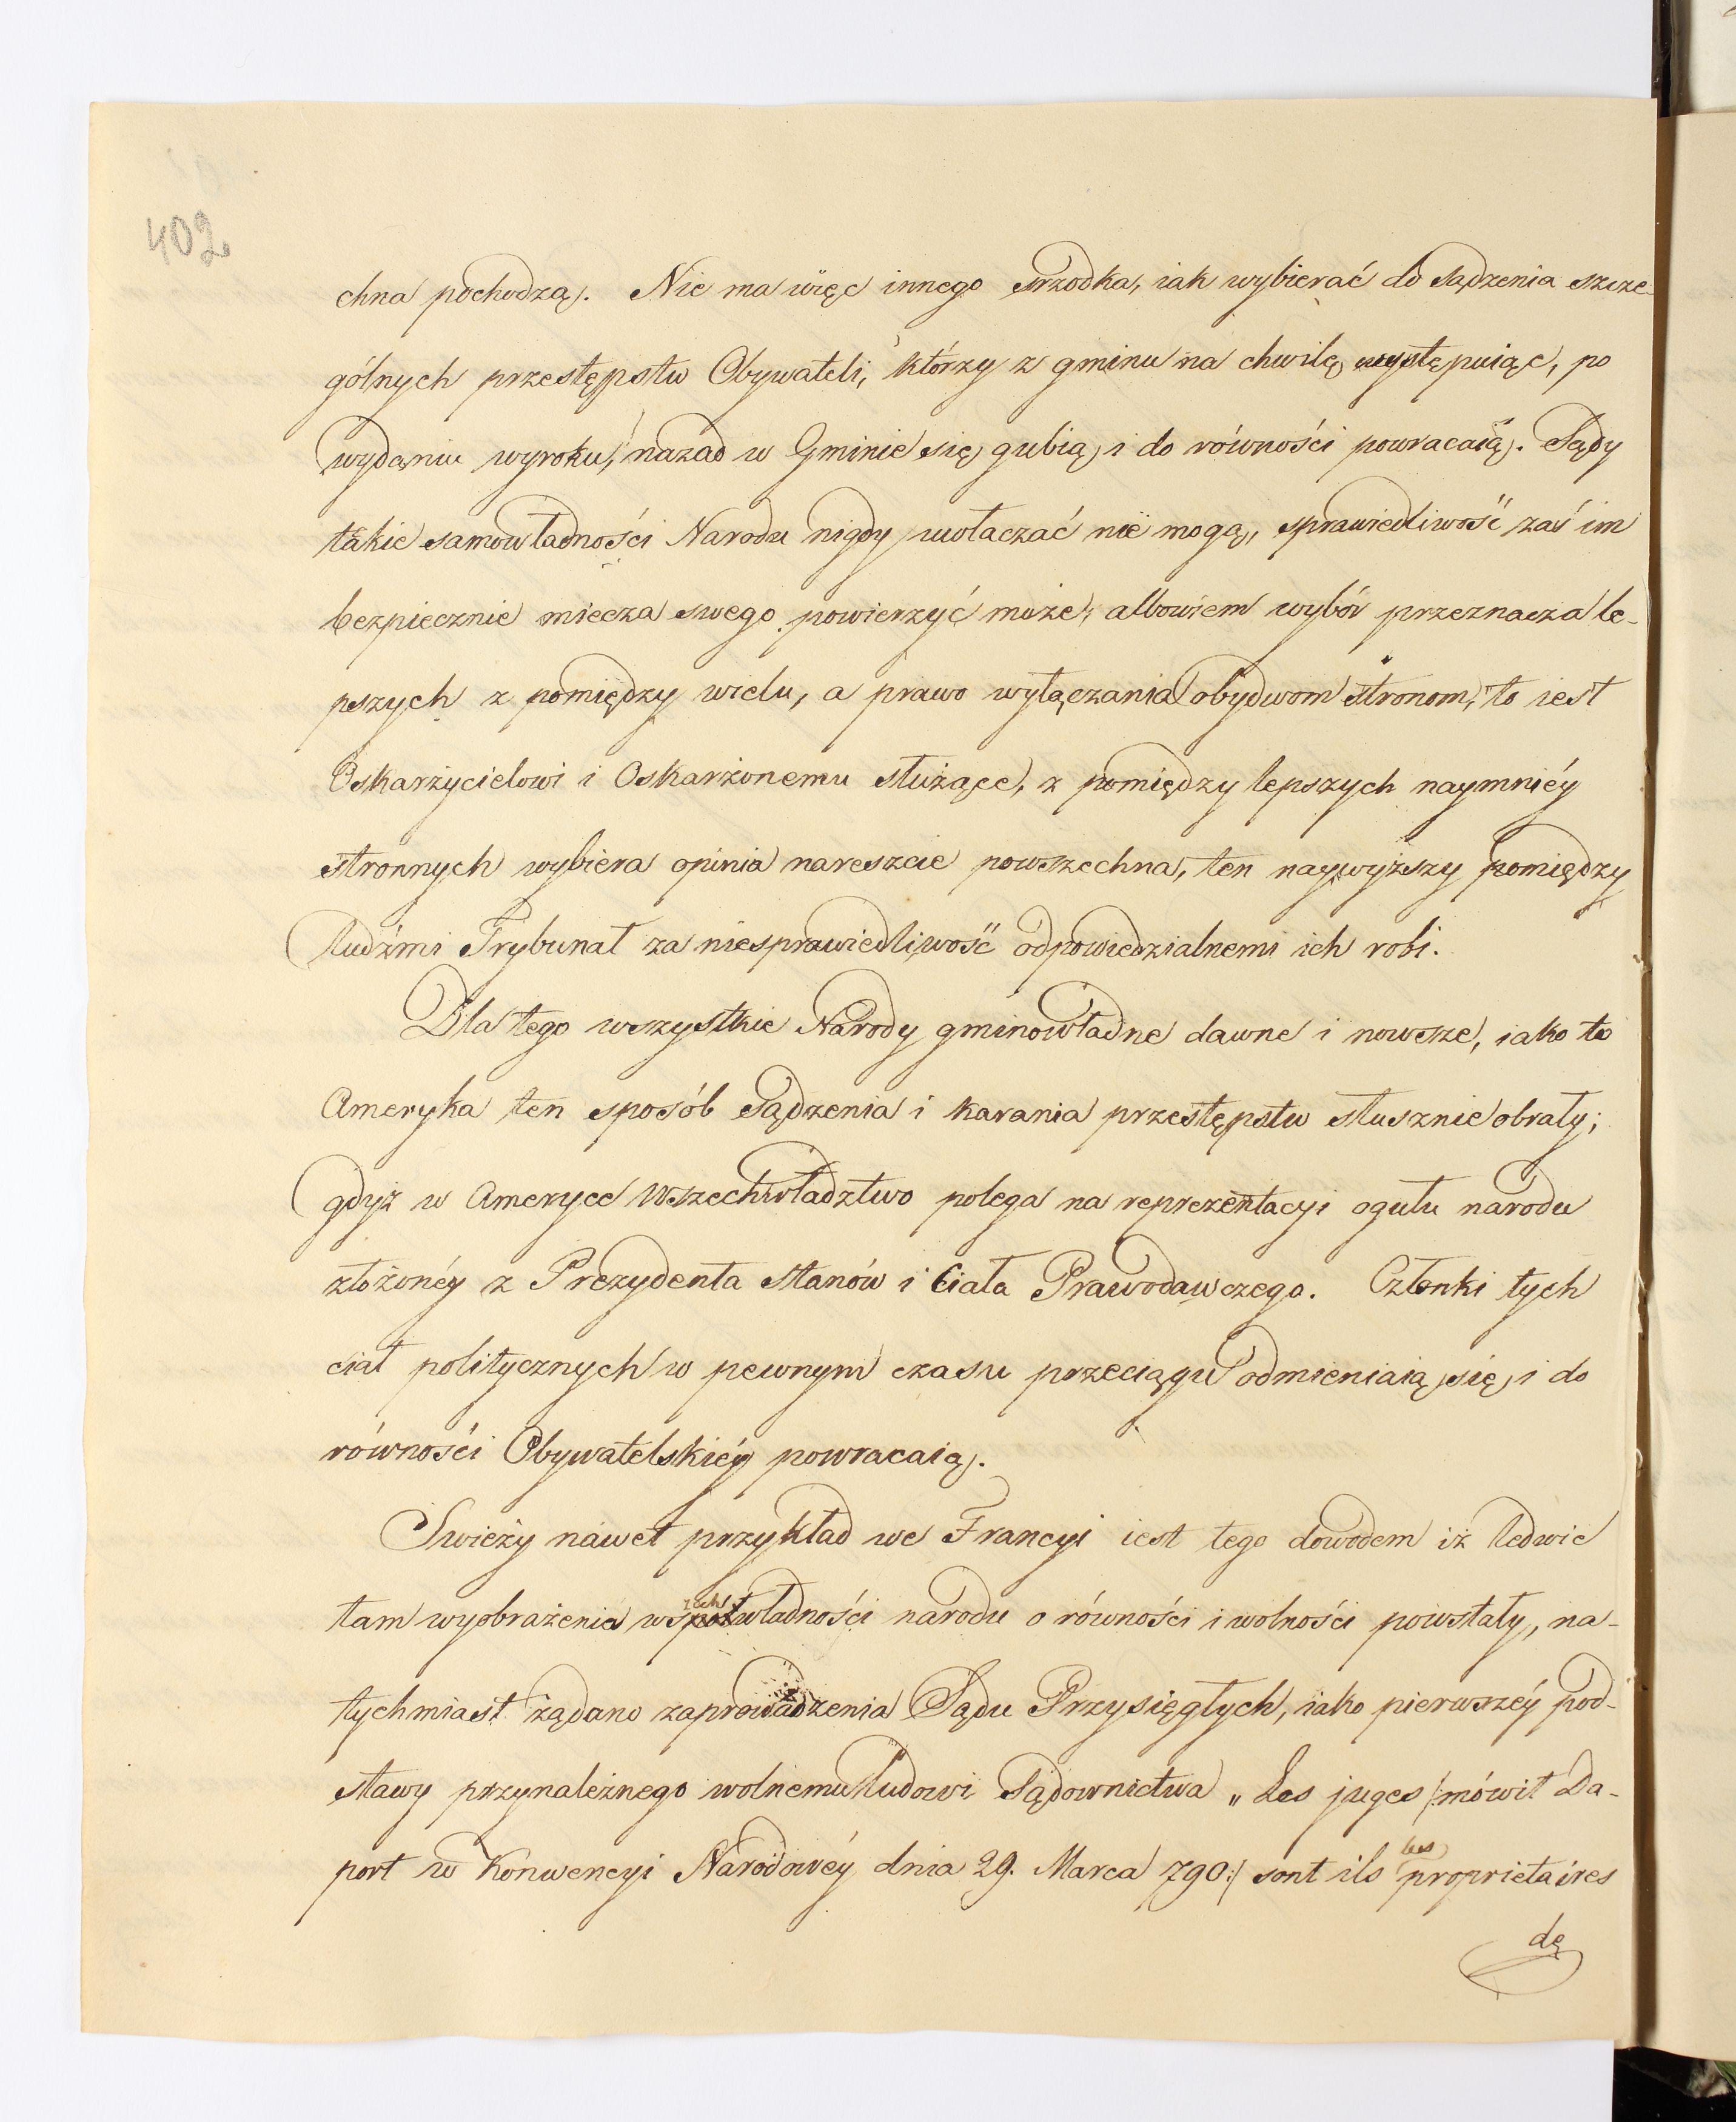 402.
chna pochodzą. Nie ma więc innego srzodka, iak wybierać do sądzenia szcze-
gólnych przestępstw Obywateli, którzy z gminu na chwilę występuiąc, po
wydaniu wyroku, nazad w Gminie się gubią i do równości powracaią. Sądy
takie samowładności Narodu nigdy uwłaczać nie mogą, sprawiedliwość zaś im
bezpiecznie miecza swego powierzyć może, albowiem wybór przeznacza le-
pszych z pomiędzy wielu, a prawo wyłączania obydwom stronom, to iest
Oskarżycielowi i Oskarżonemu służące, z pomiędzy lepszych naymniéy
stronnych wybiera opinia nareszcie powszechna, ten naywyższy pomiędzy
ludźmi Trybunał za niesprawiedliwość odpowiedzialnemi ich robi.
Dla tego wszystkie Narody gminowładne dawne i nowsze, iako to
Ameryka ten sposób sądzenia i karania przestępstw słusznie obrały;
gdyż w Ameryce Wszechwładztwo polega na reprezentacyi ogułu narodu
złożonéy z Prezydenta Stanów i Ciała Prawodawczego. Członki tych
ciał politycznych w pewnym czasu przeciągu odmieniaią się i do
równości Obywatelskiéy powracaią.
Swieży nawet przykład we Francyi iest tego dowodem iż ledwie
tam wyobrażenia wszechwładności narodu o równości i wolności powstały, na-
tychmiast żądano zaprowadzenia Sądu Przysięgłych, iako pierwszéy pod-
stawy przynależnego wolnemu ludowi Sądownictwa „ Les juges /:mówił Du-
port w Konwencyi Narodowéy dnia 29. Marca 790:/ sont ils les proprietaires
de